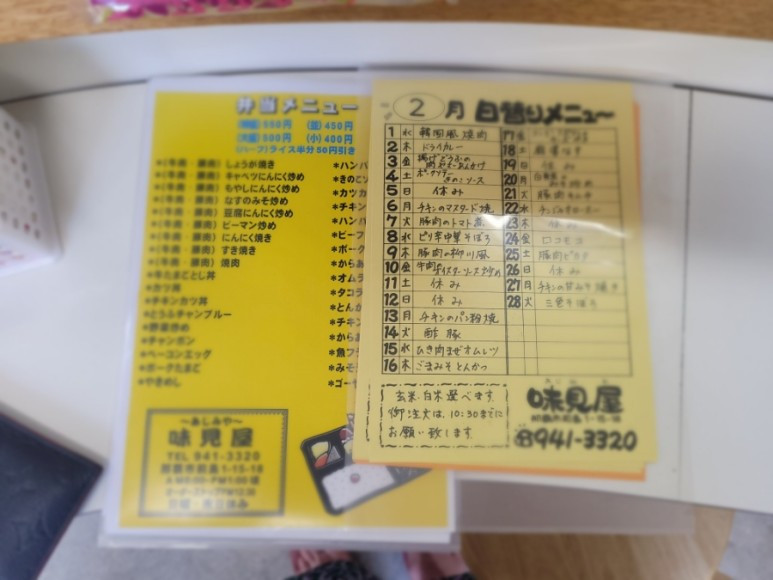 弁当メニュー
550円 450円
600円 (小) 400円
(ハーフ)ライス半分50円引き
*(牛肉 豚肉) しょうが焼き
*(牛肉 豚肉) キャベツにんにく炒め
*(牛肉 豚肉) もやしにんにく炒め
*(牛肉 豚肉) なすのみそ炒め
*(牛肉 豚肉) 豆腐にんにく炒め
*(牛肉 豚肉) ピーマン炒め
*(牛肉 豚肉) にんにく焼き
*(牛肉 豚肉) すき焼き
*(牛肉 豚肉) 焼肉
*牛たまごとじ丼
*カツ丼
*チキンカツ丼
*とうふチャンプルー
*野菜炒め
*チャンポン
*ベーコンエッグ
*ポークたまご
*やきめし
*ハンバ
*きのこソ
*カツカ
*チキン
*ハンバ
*ビーフ
*ポーク
*からあ
*オムラ
*タコラ
*とんか
*チキン
*から
*魚フ
*みそ
*ゴーヤ
~あじみや~
味見屋
TEL 941-3320
那覇市前島1-15-18
2月 日替りメニュー
1 水 韓国風焼肉
2 木 ドライカレー
3 金 揚げどうふの
4 土 ポークソテー きのこソース
5 日 休み
6 月 チキンのマスタード焼
7 火 豚肉のトマト煮
8 水 ピリ辛中華そぼろ
9 木 豚肉の柳川風
10 金 牛肉のオイスターソース炒め
11 土 休み
12 日 休み
13 月 チキンのパン粉焼
14 火 酢豚
15 水 ひき肉まぜオムレツ
16 木 ごまみそとんかつ
17 金
18 土 麻婆なす
19 日 休み
20 月
21 火 豚肉キムチ
22 水
23 木 休み
24 金 ロコモコ
25 土 豚肉ピカタ
26 日 休み
27 月 チキンの甘みそ焼き
28 火 三色そぼろ
玄米・白米選べます。
御注文は、10:30までに
お願い致します。
味見屋
那覇市前島1-15-18
☎941-3320